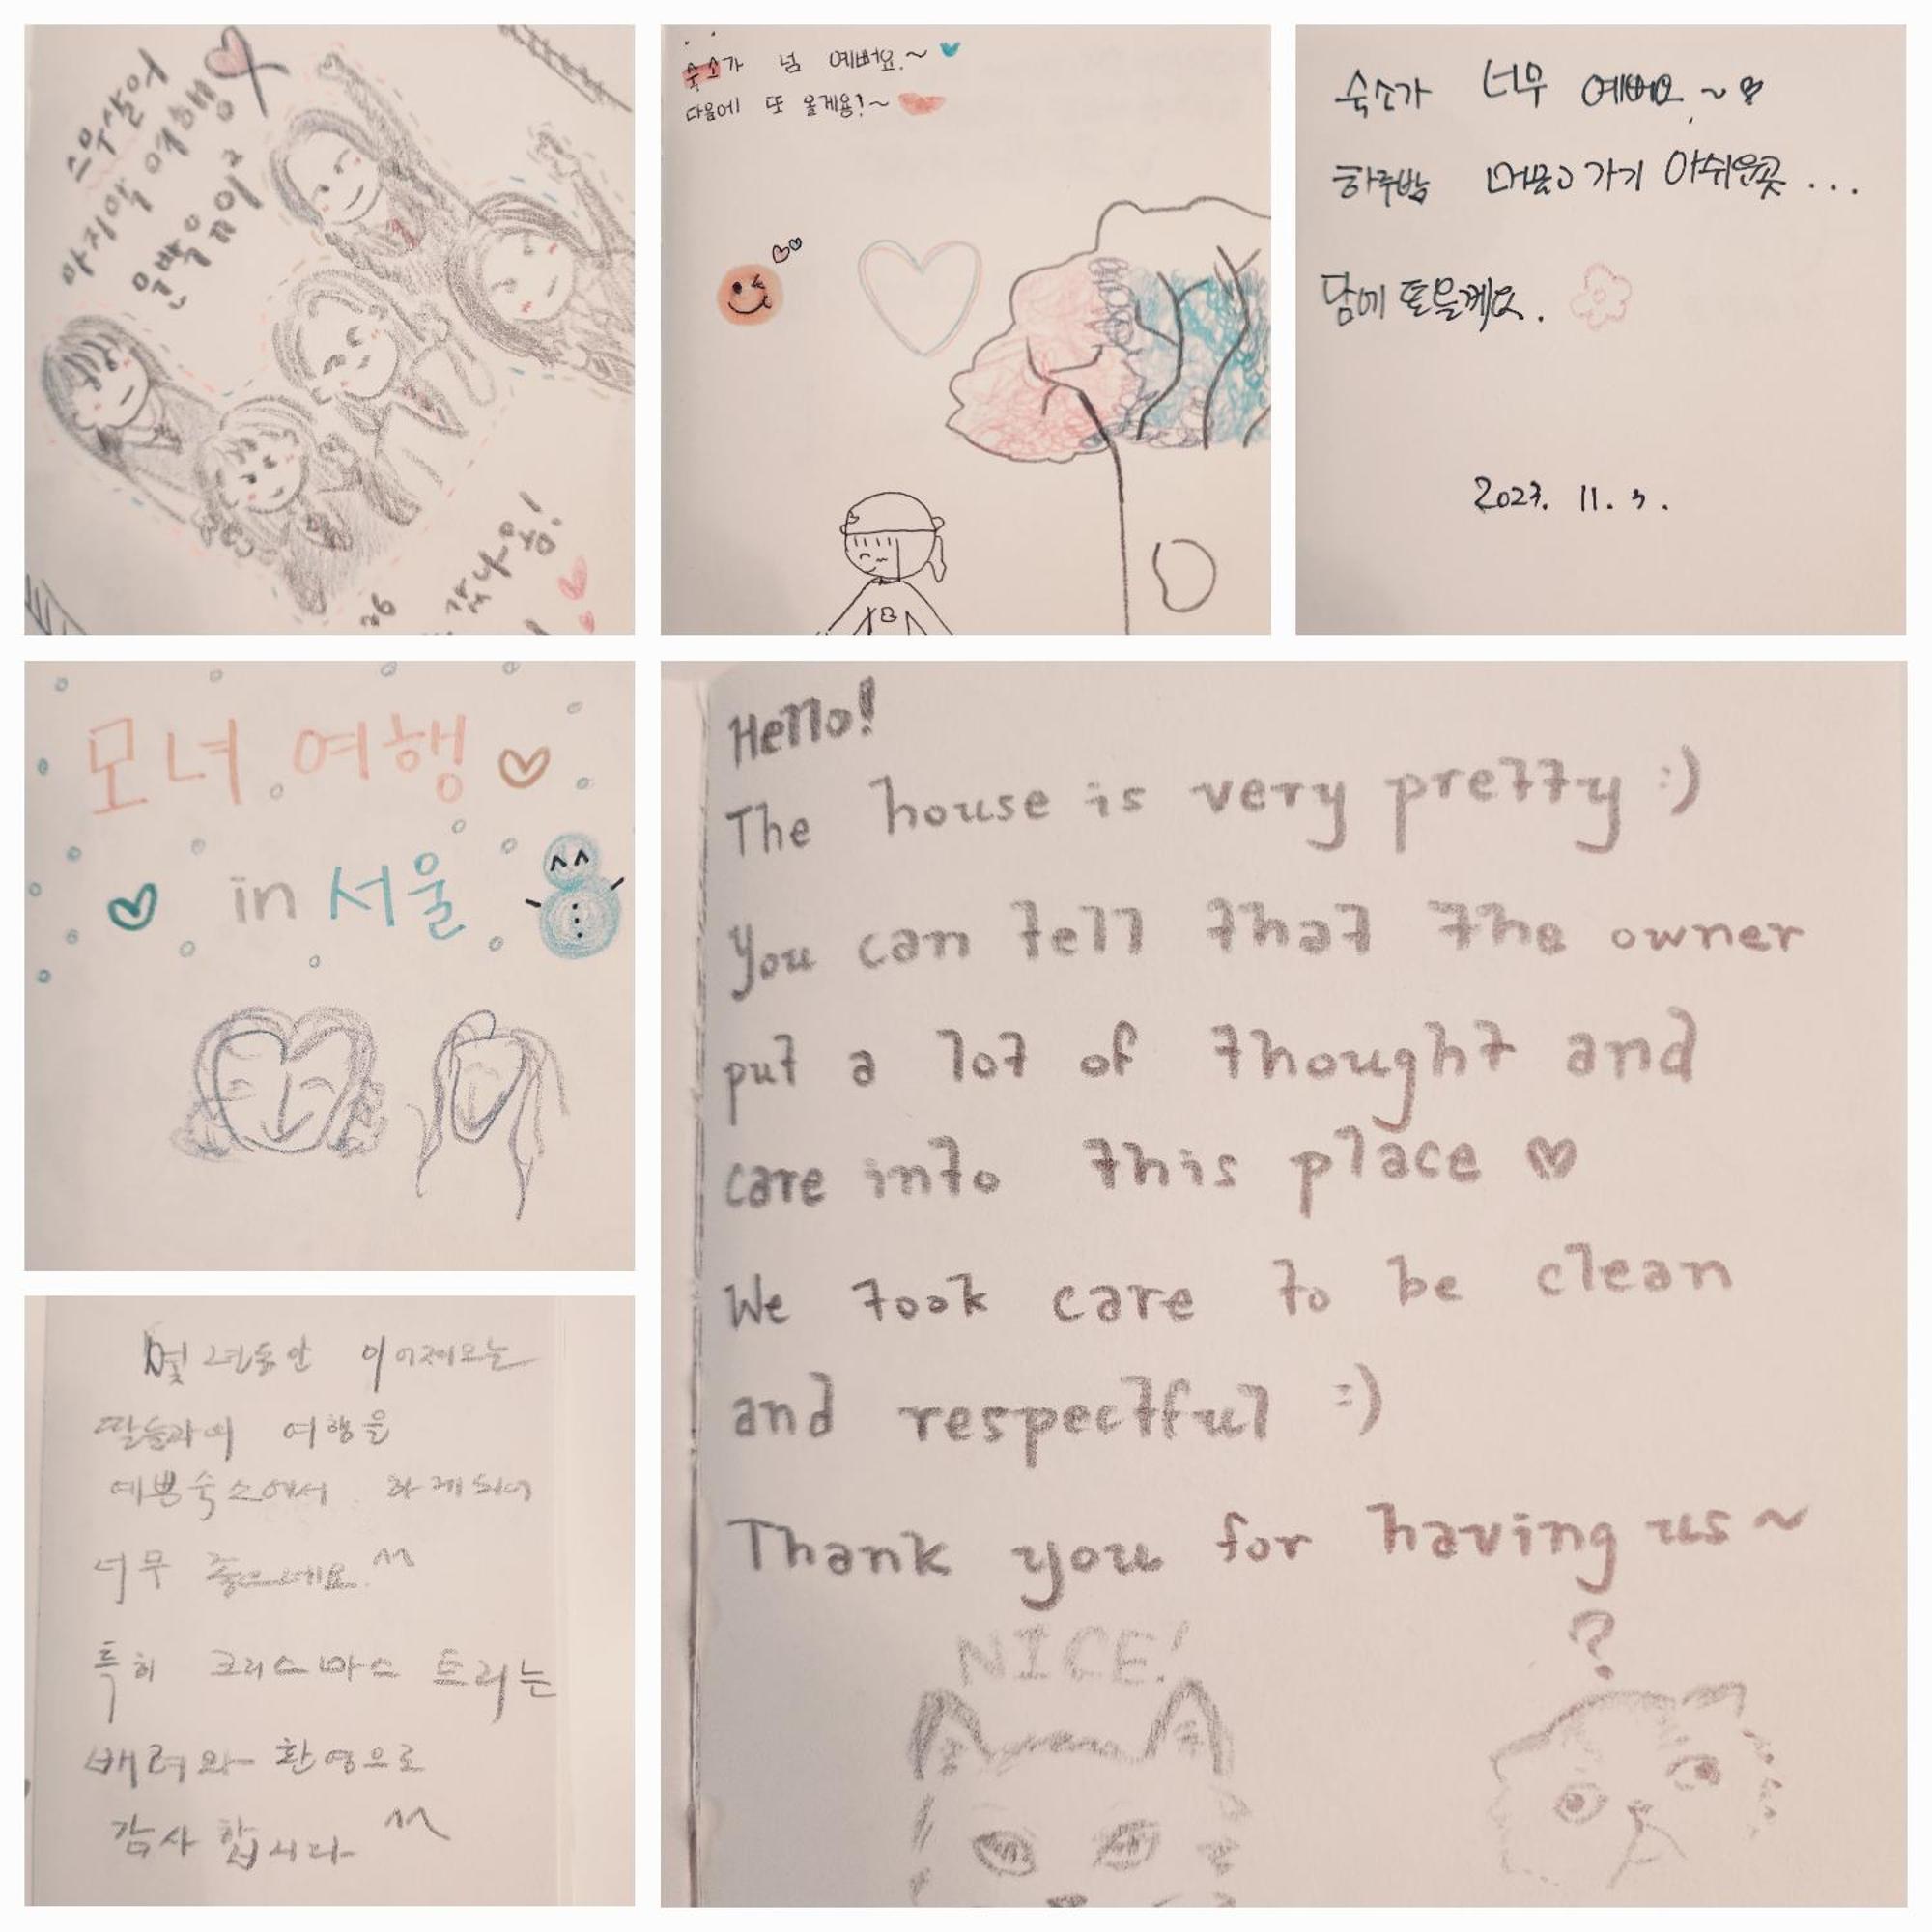 스무살의
마지막 여행
숙소가 넘 예뻐요.~
다음에 또 올게용!~
숙소가 너무 예뻐요~
하루밤 머물고 가기 아쉬운곳...
담에 또 올께요.
2023. 11. 3.
모녀 여행
in 서울
Hello!
The house is very pretty :)
You can tell that the owner
put a lot of thought and
care into this place ♡
We took care to be clean
and respectful :)
Thank you for having us~
NICE!
?
몇년동안 이어져오는
딸들과의 여행을
예쁜숙소에서 하게되어
너무 좋으네요.^^
특히 크리스마스 트리는
배려와 환영으로
감사합니다 ^^